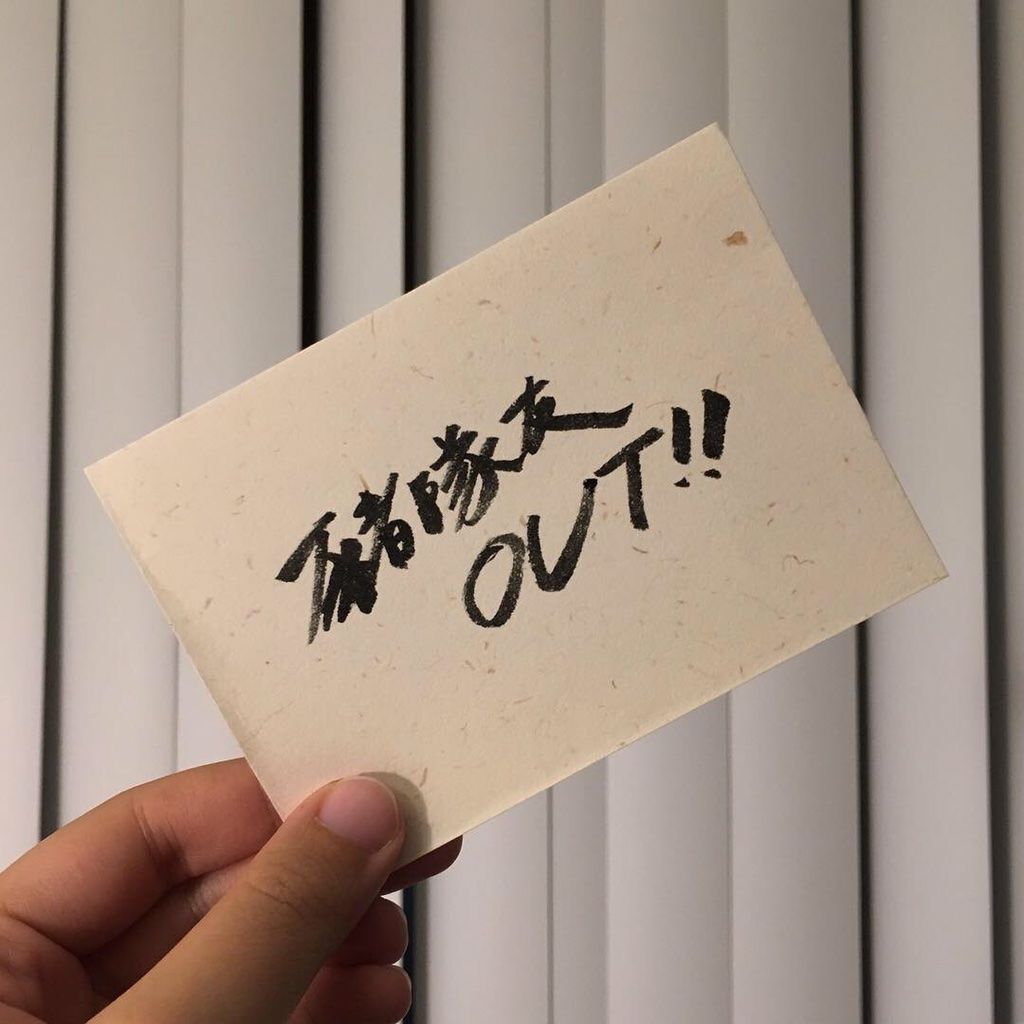 豬隊友
OUT!!